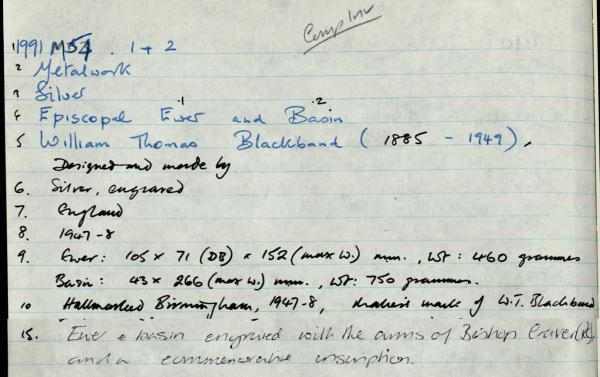 Comp Inv
1 1991 M54 . 1 + 2
2 Metalwork
3 Silver
.1 .2
4 Episcopal Ewer and Basin
5 William Thomas Blackband (1885 - 1949),
Designed and made by
6. Silver, engraved
7. England
8. 1947-8
9. Ewer: 105 x 71 (DB) x 152 (max w.) mm., wt: 460 grammes
Basin: 43 x 266 (max w.) mm., wt: 750 grammes.
10 Hallmarked Birmingham, 1947-8, maker's mark of W.T. Blackband
15. Ewer & basin engraved with the arms of Bishop Craven (RC),
and a commemorative inscription.